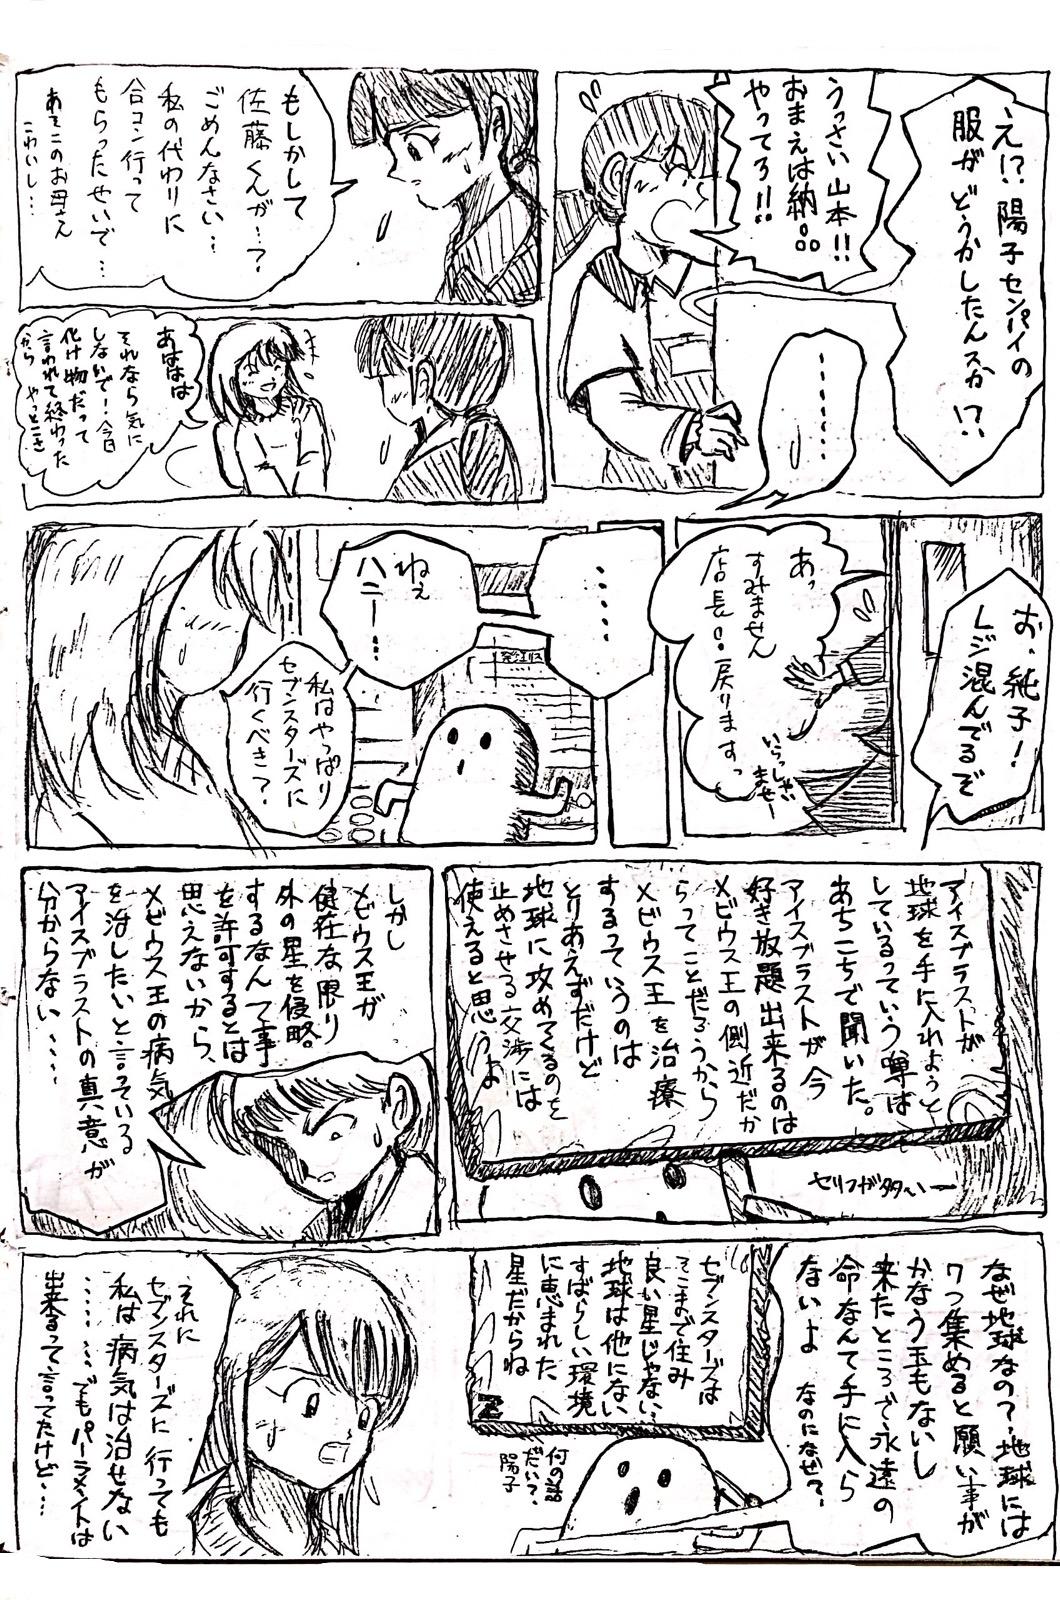 え!?陽子センパイの
服がどうかしたんスか!?
うっさい山本!!
おまえは納品
やってろ!!
………
もしかして
佐藤くんが…?
ごめんなさい…
私の代わりに
合コン行って
もらったせいで…
あそこのお母さん
こわいし…
あははは
それなら気に
しないで!今日
化け物だって
言われて終わった
から
お、純子!
レジ混んでるで
あっ
すみません
店長。戻りますっ
いらっしゃい
ませー
……
ねぇ
ハニー…
私はやっぱり
セブンスターズに
行くべき?
アイスブラストが
地球を手に入れようと
しているっていう噂は
あちこちで聞いた。
アイスブラストが今
好き放題出来るのは
メビウス王の側近だか
らってことだろうから
メビウス王を治療
するっていうのは
とりあえずだけど
地球に攻めてくるのを
止めさせる交渉には
使えると思うよ
セリフが多~いー
しかし
メビウス王が
健在な限り
外の星を侵略
するなんて事
を許可するとは
思えないから、
メビウス王の病気
を治したいと言っている
アイスブラストの真意が
分からない……
なぜ地球なの?地球には
7つ集めると願い事が
かなう玉もないし
来たところで永遠の
命なんて手に入ら
ないよ なのになぜ?
セブンスターズは
そこまで住み
良い星じゃない…
地球は他にない
すばらしい環境
に恵まれた
星だからね
何の話
だい?
陽子
それに
セブンスターズに行っても
私は病気は治せない
……でもパーラメントは
出来るって言ってたけど…